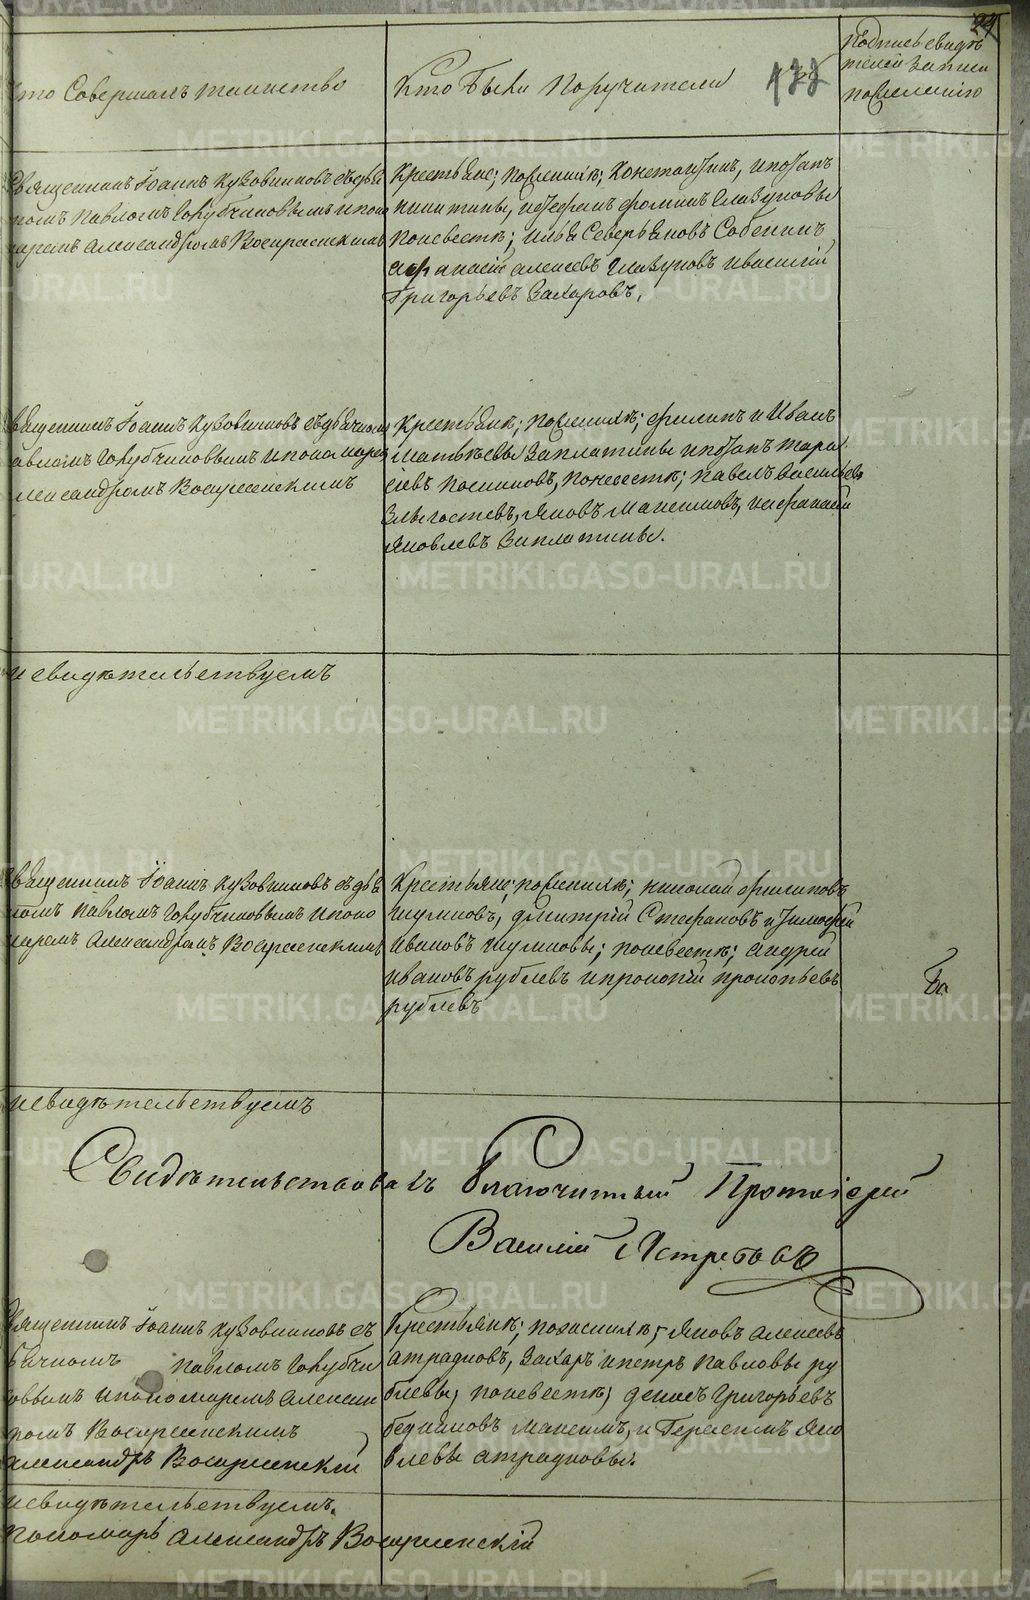 Кто Совершалъ таинство
Кто Были Поручители
Подпись свидѣ
телей записи
по желанію
Священникъ Іоаннъ Кузовниковъ съ дья
кономъ Павломъ Голубчиковымъ и поно
маремъ Александромъ Воскресенскимъ
Крестьяне; по женихѣ; Константинъ, и Потапъ
Никитины, и Стефанъ Фоминъ Глазуновы
По невестѣ; Илья Северьяновъ
Афанасій Алексѣевъ Глазуновъ и Василій
Григорьевъ Захаровъ.
Священникъ Іоаннъ Кузовниковъ съ дьячкомъ
Павломъ Голубчиковымъ и пономаремъ
Александромъ Воскресенскимъ
Крестьяне; по женихѣ; Филипъ и Иванъ
Матвѣевы Заплатины и Потапъ Тара
севъ, по невестѣ; Павелъ Васильевъ
Яковъ Максимовъ, и Афанасій
Яковлевъ Заплатины.
и свидѣтельствуемъ
Священникъ Іоаннъ Кузовниковъ съ дья
Павломъ Голубчиковымъ и поно
маремъ Александромъ Воскресенскимъ
Крестьяне; по женихѣ; Николай Филиповъ
Шумковъ, Дмитрій Стефановъ и Тимофей
Ивановъ Шумковы; по невестѣ; Андрей
Ивановъ Рублевъ и Прокопій Прокопьевъ
Рублевъ
и свидѣтельствуемъ
Свидѣтельствовалъ Благочинный Протоіерей
Василій Ястребовъ
Священникъ Іоаннъ Кузовниковъ съ
дьячкомъ Павломъ Голубчи
ковымъ и пономаремъ Алексан
дромъ Воскресенскимъ
Александръ Воскресенскій
Крестьяне; по женихѣ; Яковъ Алексѣевъ
Атрадновъ, Захаръ и Петръ Павловы Ру
блевы; по невестѣ; Денисъ Григорьевъ
Максимъ, и Герасимъ Яко
влевы Атрадновы.
и свидѣтельствуемъ.
Пономарь Александръ Воскресенскій
METRIKI.GASO-URAL.RU